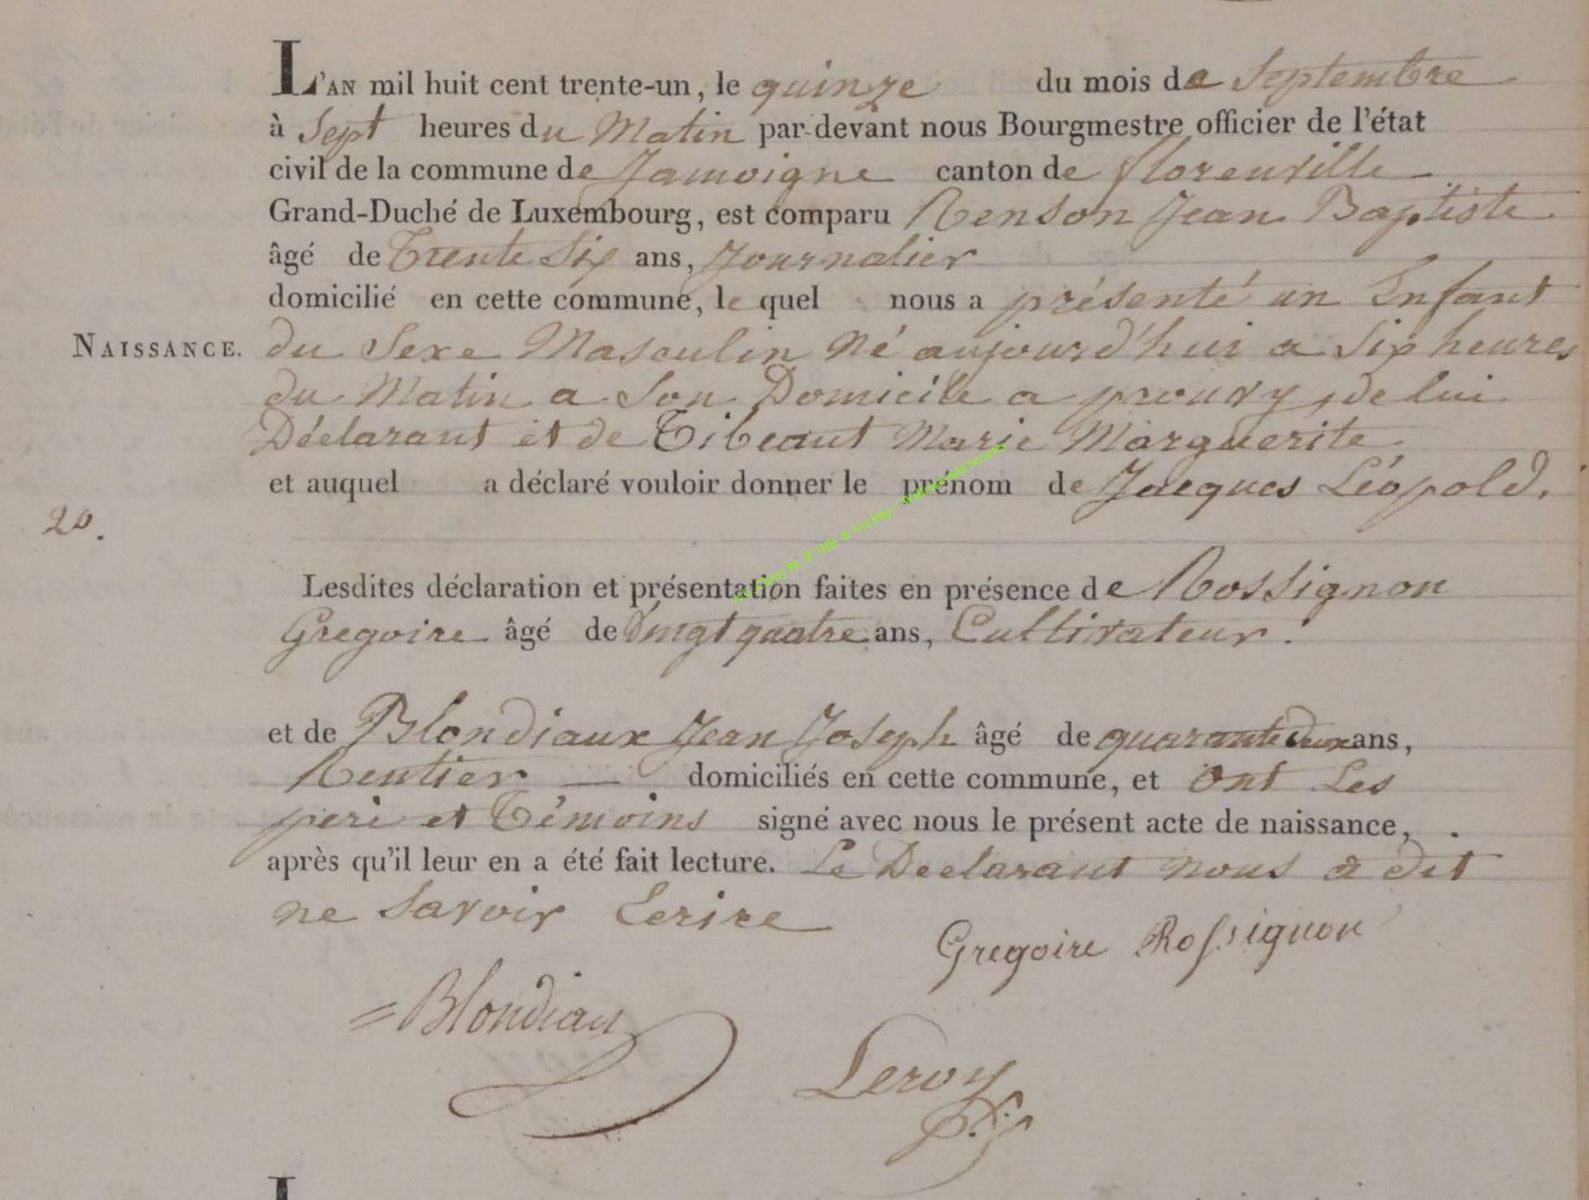 L'AN mil huit cent trente-un, le quinze du mois de Septembre
à Sept heures du Matin par-devant nous Bourgmestre officier de l'état
civil de la commune de Jamoigne canton de florenville
Grand-Duché de Luxembourg, est comparu Renson Jean Baptiste
âgé de Trente Six ans, Journalier
domicilié en cette commune, le quel nous a présenté un Enfant
NAISSANCE. du Sexe Masculin Né aujourd'hui a Six heures
du Matin a Son Domicile a prouvy, de lui
Déclarant et de Tibeaut Marie Marguerite
et auquel a déclaré vouloir donner le prénom de Jacques Léopold.
20.
Lesdites déclaration et présentation faites en présence de Rossignon
Gregoire âgé de Vingt quatre ans, Cultivateur.
et de Blondiaux Jean Joseph âgé de quarante deux ans,
Rentier — domiciliés en cette commune, et ont Les
peri et Témoins signé avec nous le présent acte de naissance,
après qu'il leur en a été fait lecture. Le Declarant nous a dit
ne Savoir Ecrire
Gregoire Rossignon
=Blondiau
Leroy
L